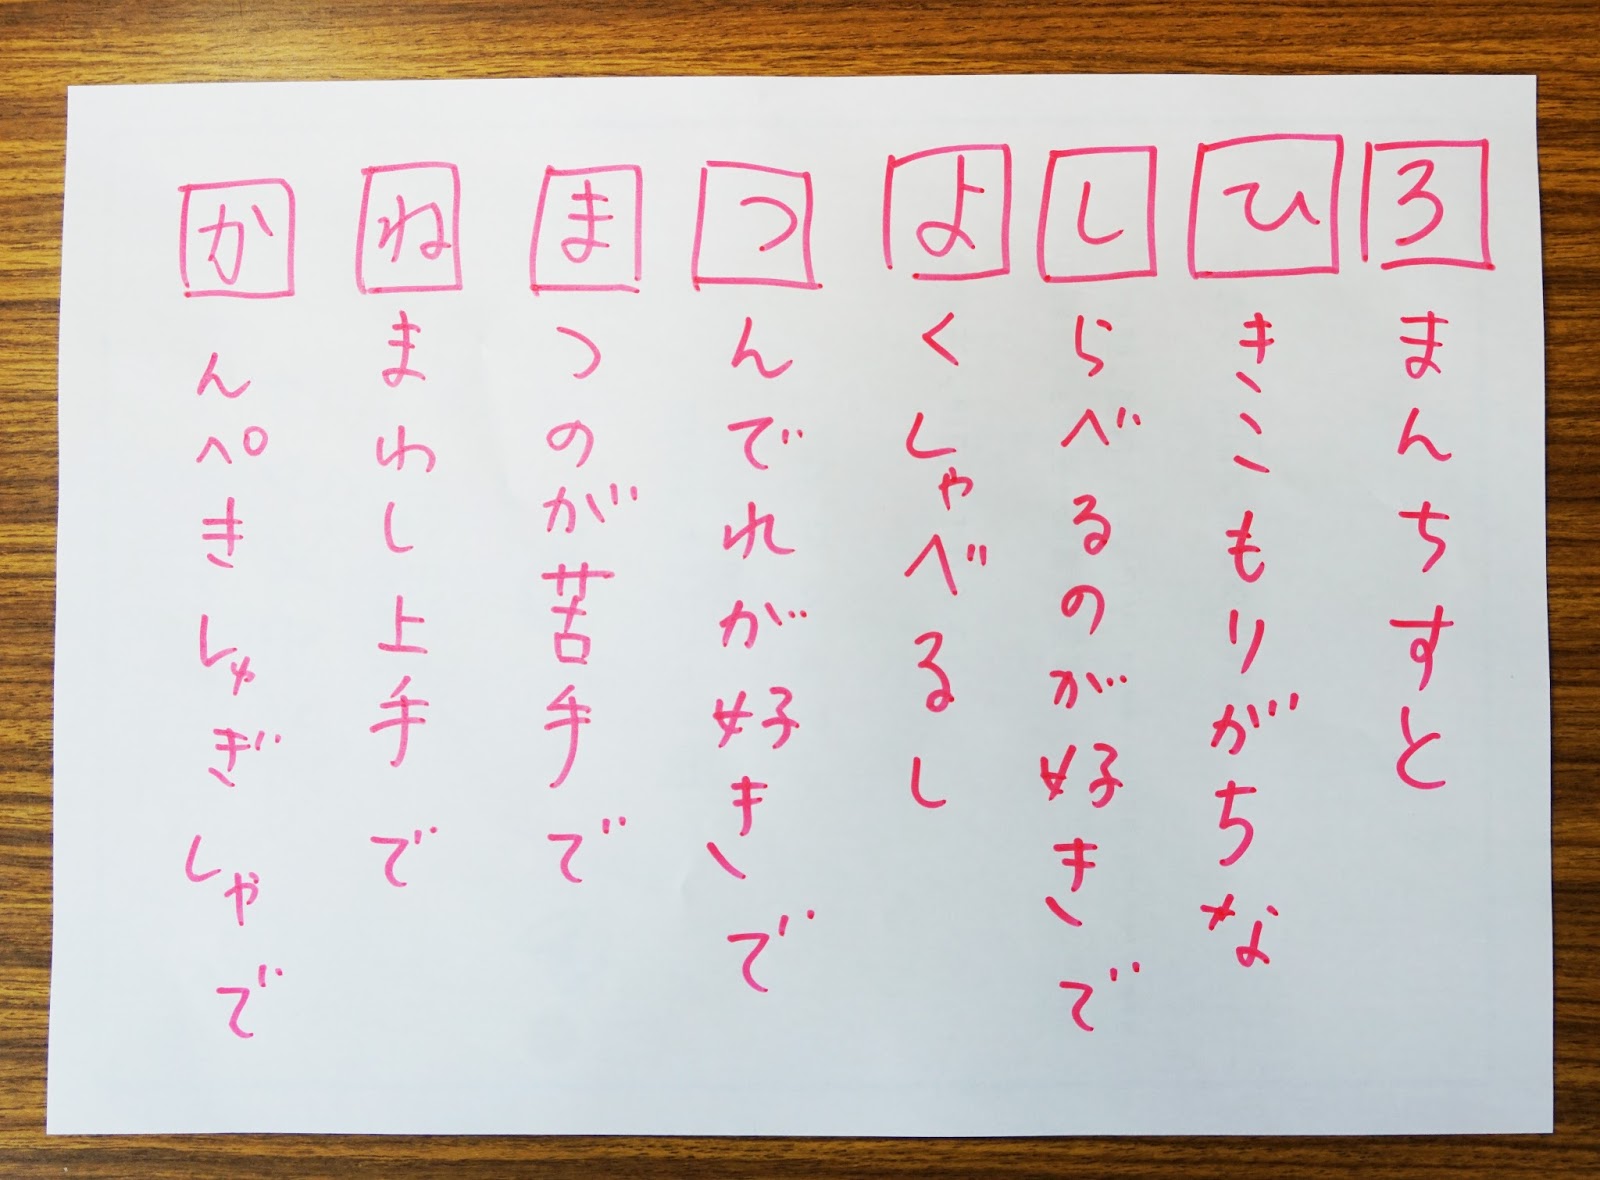 かんぺきしゅぎしゃで
ねまわし上手で
まつのが苦手で
つんでれが好きで
よくしゃべるし
しらべるのが好きで
ひきこもりがちな
ろまんちすと